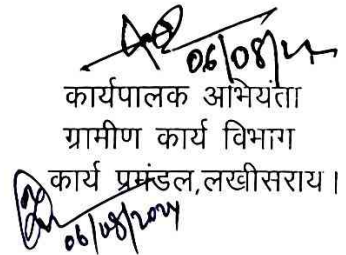 06/08/24
कार्यपालक अभियंता
ग्रामीण कार्य विभाग
कार्य प्रमंडल,लखीसराय।
06/08/2024